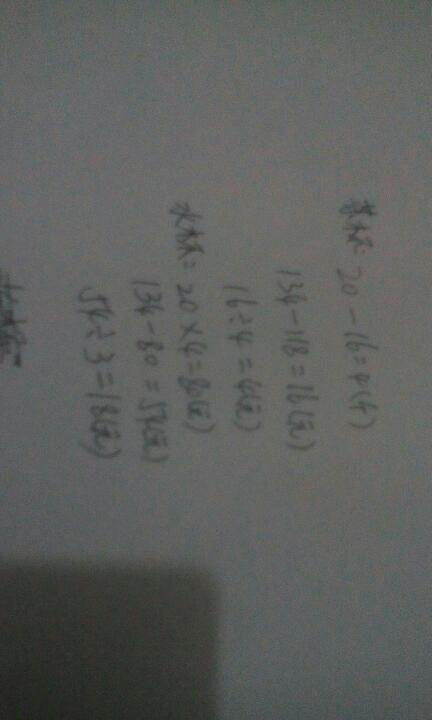 20-16=4(千)
134-118=16(元)
16÷4=4(元)
20×4=80(元)
134-80=54(元)
54÷3=18(元)